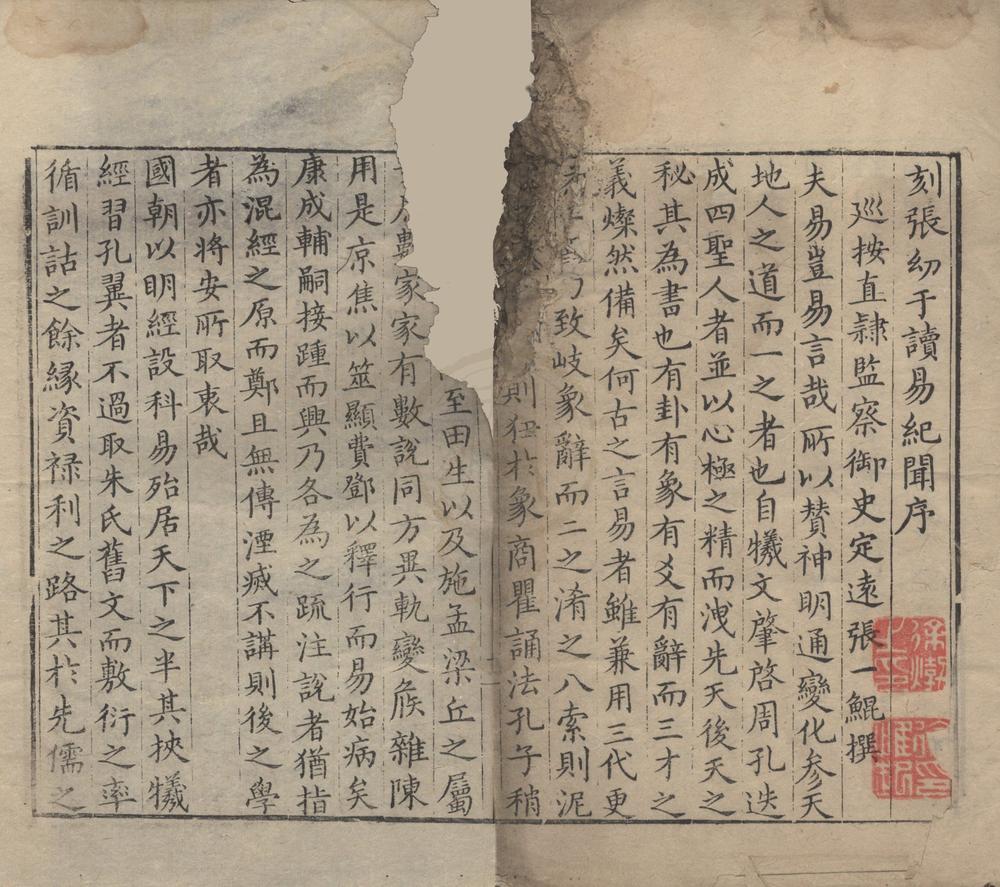 刻張幼于讀易紀聞序
巡按直隸監察御史定遠張一鯤撰
夫易豈易言哉所以贊神明通變化參天
地人之道而一之者也自犧文肇啓周孔迭
成四聖人者並以心極之精而洩先天後天之
秘其為書也有卦有象有爻有辭而三才之
義燦然備矣何古之言易者雖兼用三代更
致岐象辭而二之淆之八索則泥
則狃於象商瞿誦法孔子稍
至田生以及施孟梁丘之屬
數家家有數說同方異軌變候雜陳
用是京焦以筮顯費鄧以釋行而易始病矣
康成輔嗣接踵而興乃各為之疏注說者猶指
為混經之原而鄭且無傳湮滅不講則後之學
者亦將安所取衷哉
國朝以明經設科易殆居天下之半其挾犧
經習孔翼者不過取朱氏舊文而敷衍之率
循訓詁之餘緣資祿利之路其於先儒之